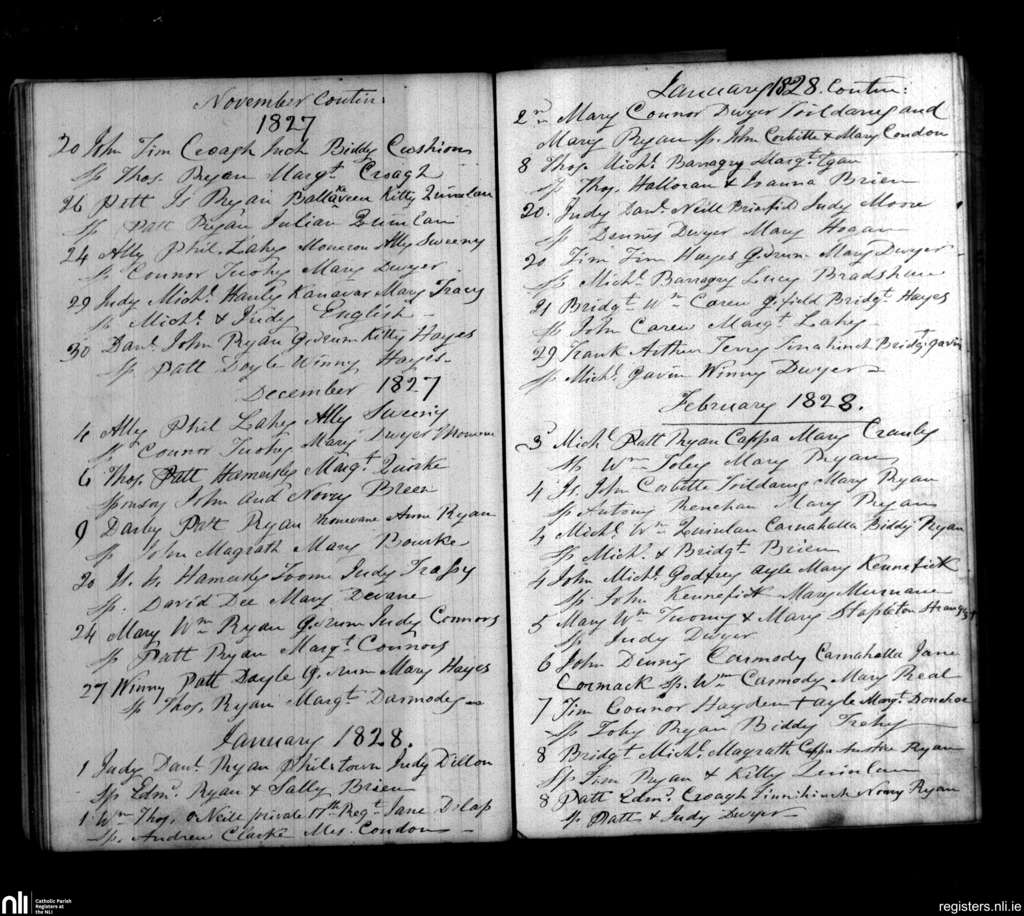 November Contin:
1827
20 John Tim Croagh Inch Biddy Cushion
Sp Thos. Ryan Margt. Croagh
26 Patt Js Ryan Kitty Quinlan
Sp Patt Ryan Julian Quinlan
24 Ally Phil. Lahy Moneroe Ally Sweeny
Sp Connor Tuohy Mary Dwyer
29 Judy Michl. Hanly Kanavar Mary Tracy
Sp Michl. & Judy English
30 Danl. John Ryan Gidrum Kitty Hayes
Sp Patt Doyle Winny Hayes
December 1827
4 Ally Phil Lahy Ally Sweeny
Sp Connor Tuohy Mary Dwyer
6 Thos. Patt Hamersly Margt. Quirke
Sponsors John and Norry Breen
9 Darby Patt Ryan Anne Ryan
Sp John Magrath Mary Bourke
20 Hamersly Toome Judy Trassy
Sp. David Dee Mary Devane
24 Mary Wm Ryan Gidrum Judy Connors
Sp Patt Ryan Margt. Connors
27 Winny Patt Doyle Gidrum Mary Hayes
Sp Thos. Ryan Margt. Darmody
January 1828.
1 Judy Danl. Ryan Philstown Judy Dillon
Sp Edmd. Ryan & Sally Brien
1 Wm Thos. O Neill private 17th Regt. Jane Delap
Sp. Andrew Clarke Mrs. Condon
January 1828. Contin:
2n Mary Connor Dwyer Toildarug and
Mary Ryan Sp. John Corbitte & Mary Condon
8 Thos. Michl. Barragry Margt. Egan
Sp Thos. Halloran & Joanna Brien
20. Judy Danl. Neill Judy Moore
Sp Dennis Dwyer Mary Hogan
20 Tim Tim Hayes Gidrum Mary Dwyer
Sp Michl. Barragry Lucy Bradshaw
21 Bridgt. Wm Carew Bridgt. Hayes
Sp John Carew Margt. Lahy
29 Frank Arthur Terry Bridgt. Gavin
Sp Michl. Gavin Winny Dwyer
February 1828.
3d Michl Patt Ryan Cappa Mary Cranly
Sp Wm Foley Mary Ryan
4 Js. John Corbitte Toildarug Mary Ryan
Sp Antony Renehan Mary Ryan
4 Michl. Wm Quinlan Carnahalla Biddy Ryan
Sp Michl. & Bridgt. Brien
4 John Michl. Godfrey Ayle Mary Kennefick
Sp. John Kennefick Mary Murnane
5 Mary Wm Tuomy & Mary Stapleton
Sp Judy Dwyer
6 John Dennis Carmody Carnahalla Jane
Cormack Sp. Wm Carmody Mary Real
7 Tim Connor Hayden Ayle Margt. Donohoe
Sp Toby Ryan Biddy Trehy
8 Bridgt. Michl. Magrath Cappa Ryan
Sp Tim Ryan & Kitty Quinlan
8 Patt Edmd. Croagh Linnihinch Norry Ryan
Sp Patt & Judy Dwyer
nli
Catholic Parish
Registers at
the NLI
registers.nli.ie